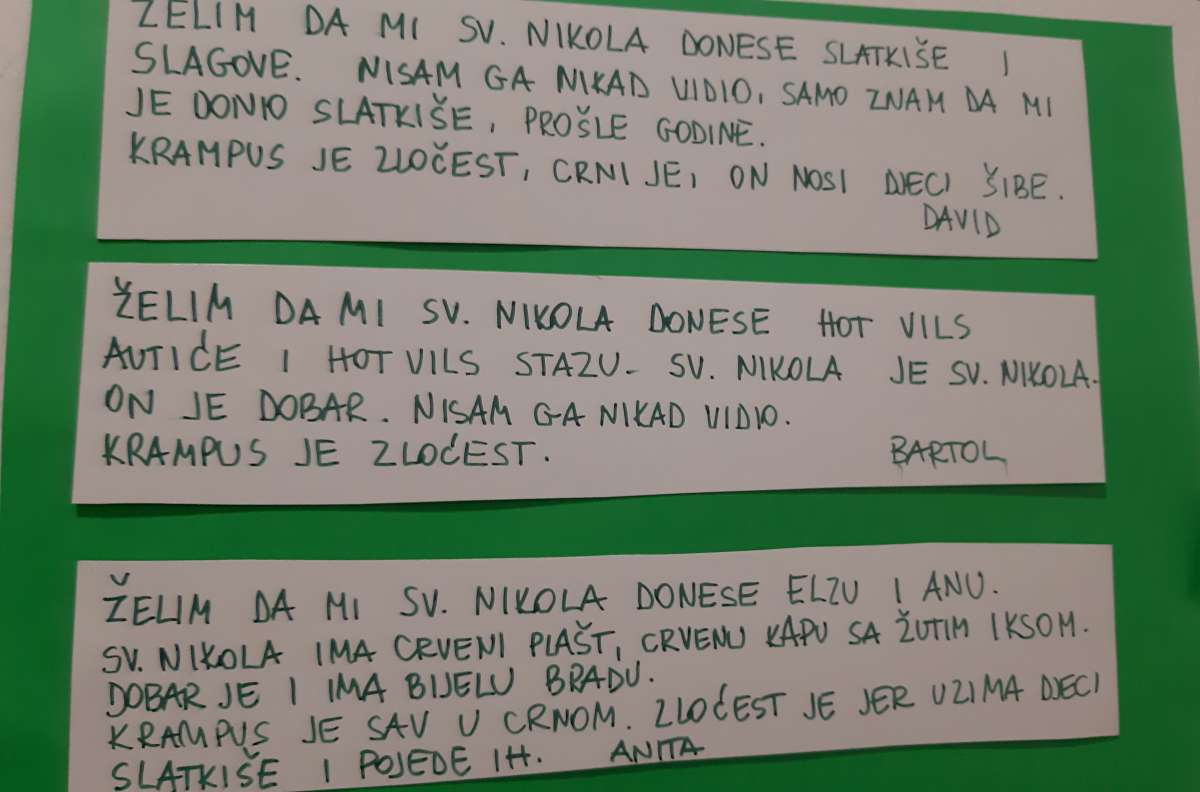 ŽELIM DA MI SV. NIKOLA DONESE SLATKIŠE I
SLAGOVE. NISAM GA NIKAD VIDIO, SAMO ZNAM DA MI
JE DONIO SLATKIŠE, PROŠLE GODINE.
KRAMPUS JE ZLOČEST, CRNI JE, ON NOSI DJECI ŠIBE.
DAVID
ŽELIM DA MI SV. NIKOLA DONESE HOT VILS
AUTIĆE I HOT VILS STAZU. SV. NIKOLA JE SV. NIKOLA.
ON JE DOBAR. NISAM GA NIKAD VIDIO.
KRAMPUS JE ZLOĆEST. BARTOL
ŽELIM DA MI SV. NIKOLA DONESE ELZU I ANU.
SV. NIKOLA IMA CRVENI PLAŠT, CRVENU KAPU SA ŽUTIM IKSOM.
DOBAR JE I IMA BIJELU BRADU.
KRAMPUS JE SAV U CRNOM. ZLOĆEST JE JER UZIMA DJECI
SLATKIŠE I POJEDE IH. ANITA